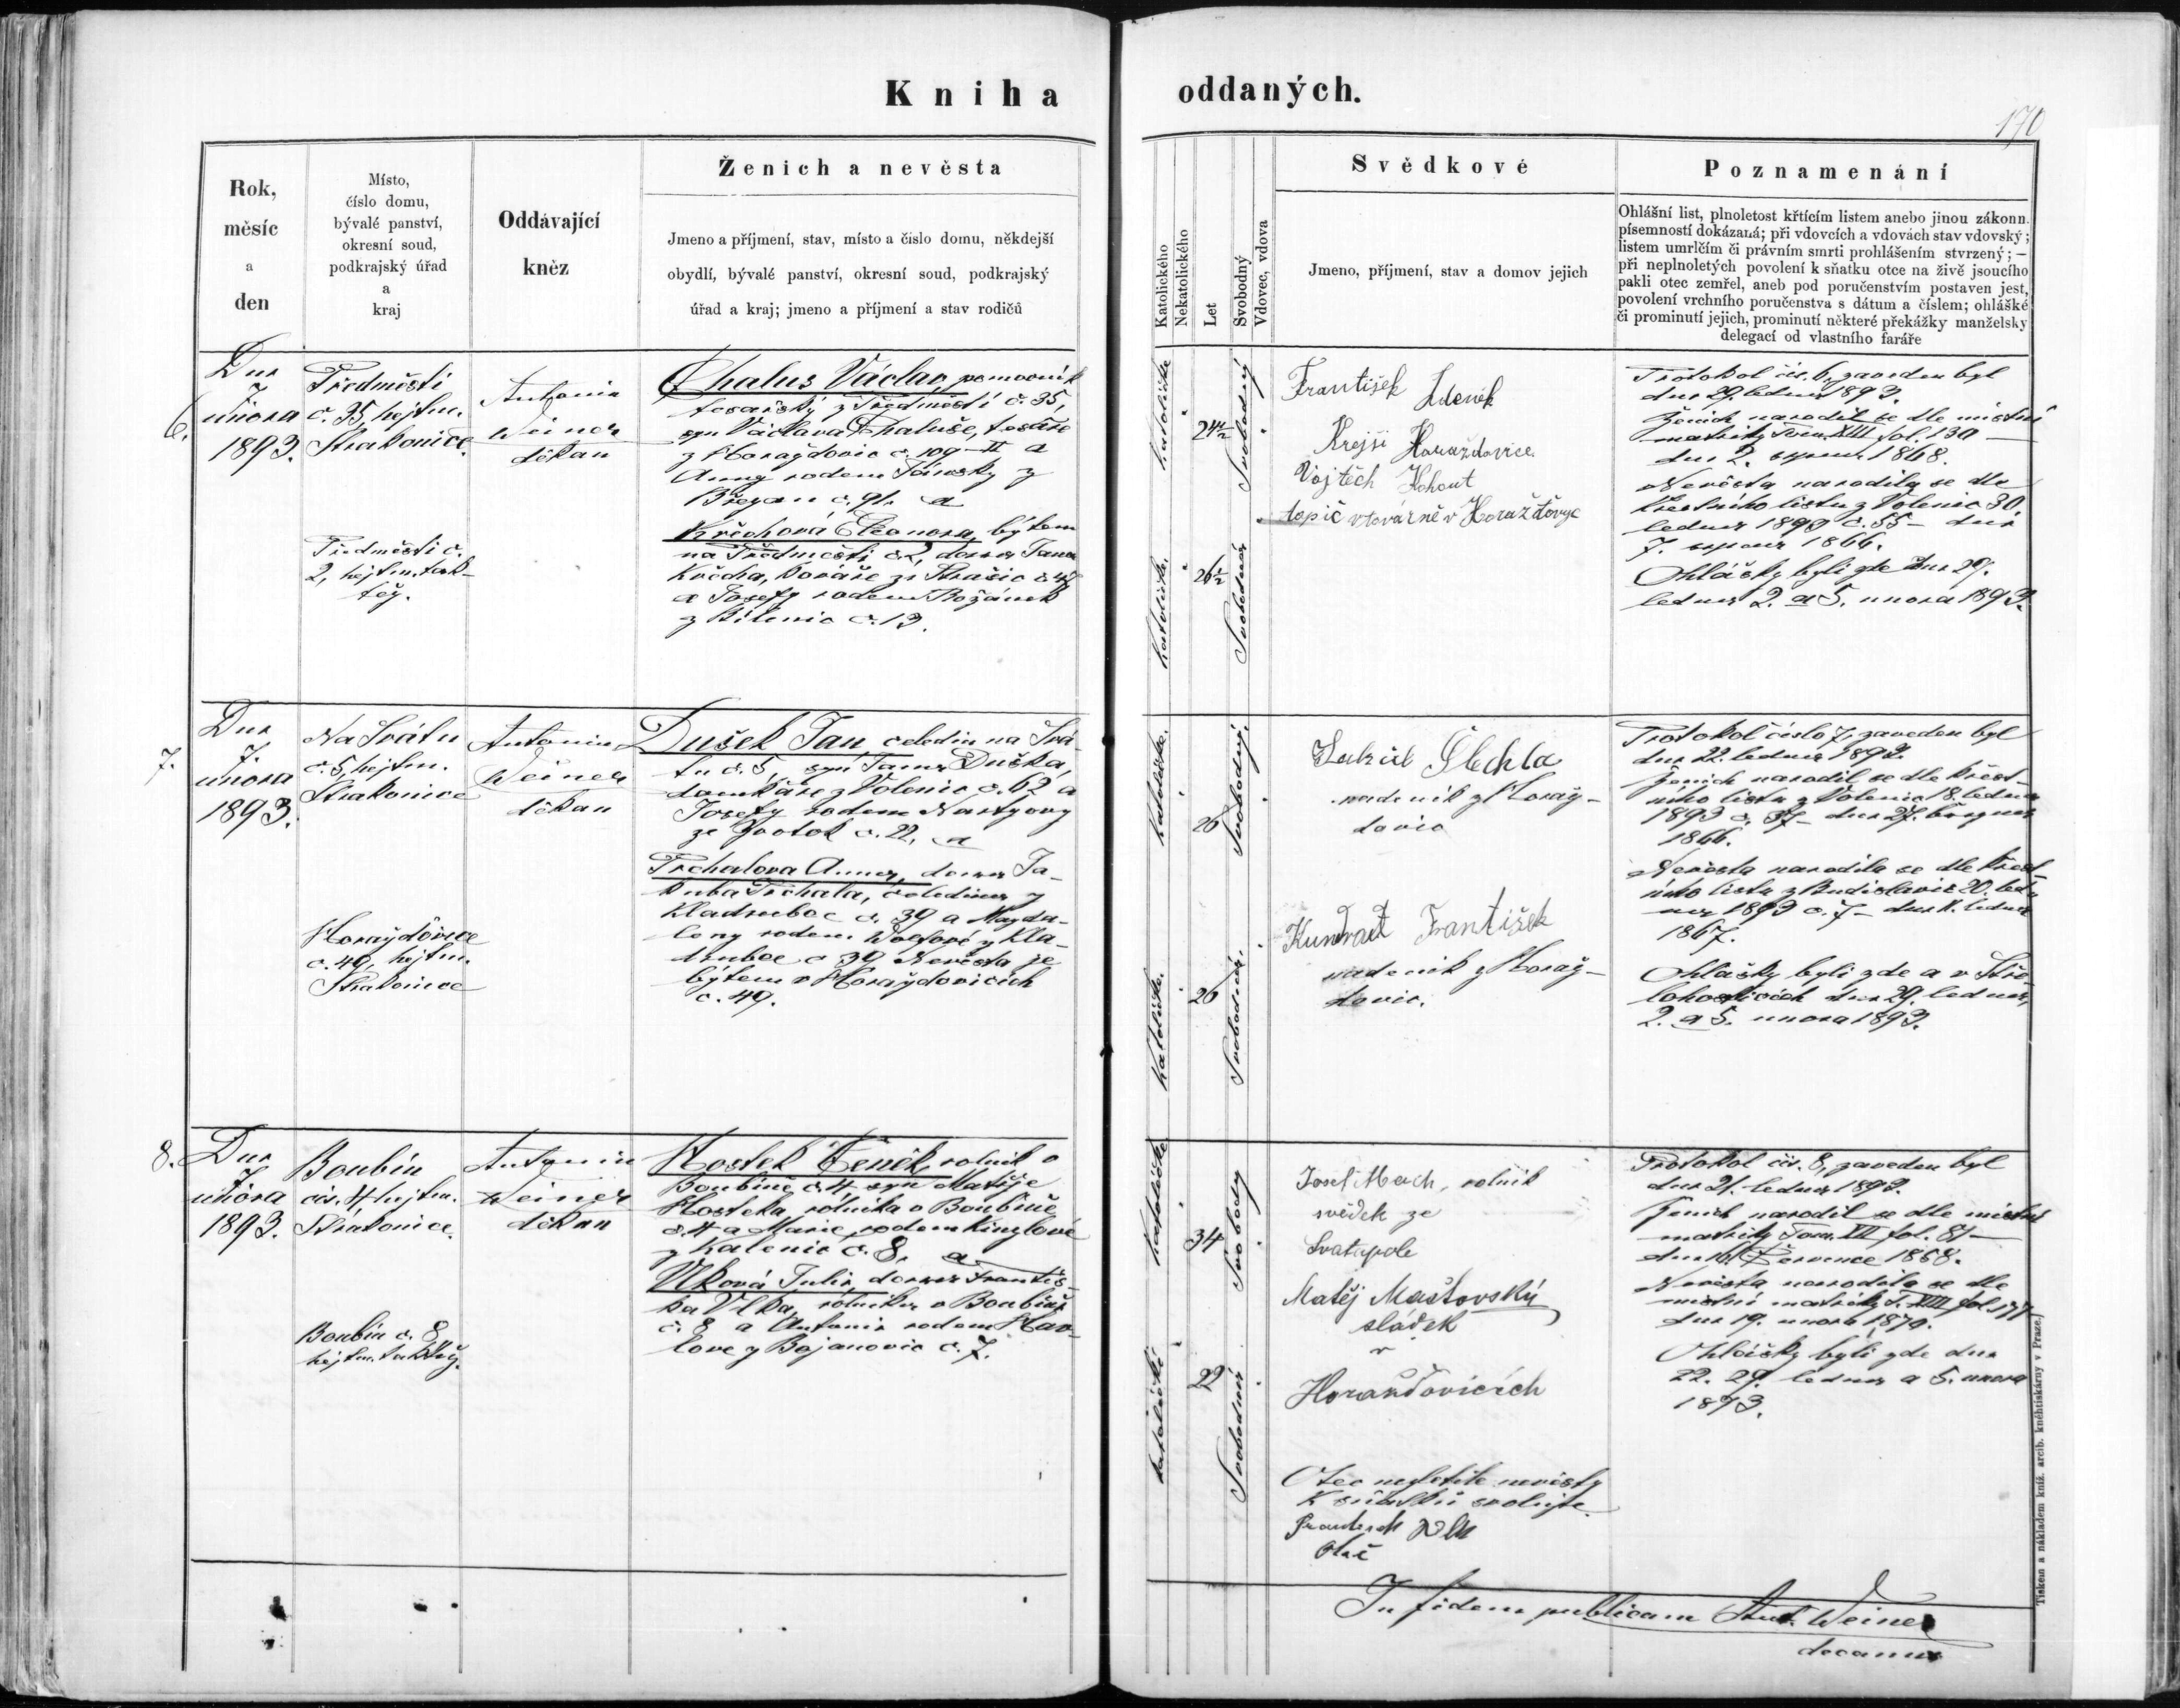 Kniha oddaných.
170
Rok,
měsíc
a
den
Místo,
číslo domu,
bývalé panství,
okresní soud,
podkrajský úřad
a
kraj
Oddávající
kněz
Ženich a nevěsta
Jmeno a příjmení, stav, místo a číslo domu, někdejší
obydlí, bývalé panství, okresní soud, podkrajský
úřad a kraj; jmeno a příjmení a stav rodičů
Katolického
Nekatolického
Let
Svobodný
Vdovec, vdova
Svědkové
Jmeno, příjmení, stav a domov jejich
Poznamenání
Ohlášní list, plnoletost křtícím listem anebo jinou zákonn.
písemností dokázaná; při vdovcích a vdovách stav vdovský;
listem umrlčím či právním smrti prohlášením stvrzený; —
při neplnoletých povolení k sňatku otce na živě jsoucího
pakli otec zemřel, aneb pod poručenstvím postaven jest,
povolení vrchního poručenstva s dátum a číslem; ohláške
či prominutí jejich, prominutí některé překážky manželsky
delegací od vlastního faráře
6.
Dne
7.
února
1893.
Předměstí
č. 35, hejtm.
Strakonice.
Předměstí č.
2, hejtm. tak-
též.
Antonín
Weiner
děkan
Chalus Václav, pomocník
tesařský z Předměstí č. 35,
syn Václava Chaluše, tesaře
z Horažďovic č. 109-II a
Anny rodem
Břežan č. 91. a
Křechová Eleonora, bytem
na Předměstí č. 2, dcera Jana
Křecha, kováře ze Strašic č. 47
a Josefy rodem Rožánek
z č. 13.
katolické
24 1/2
Svobodný
katolické.
26 1/2
Svobodná
František Zdeněk
Krejší Horažďovice.
Vojtěch Kohout
topič v továrně v
Protokol čís. 6, zaveden byl
dne 29. ledna 1893.
Ženich narodil se dle místní
matriky Tom. XIII fol. 130 —
dne 2. srpna 1868.
Nevěsta narodila se dle
křestního listu z Volenic 30.
ledna 1893 č. 55 — dne
7. srpna 1866.
Ohlášky byli zde dne 29.
ledna 2. a 5. února 1893.
7.
Dne
7.
února
1893.
Na Svátu
č. 5, hejtm.
Strakonice
Horažďovice
č. 49, hejtm.
Strakonice
Antonín
Weiner
děkan
Dušek Jan, čeledín na Svá-
tu č. 5, syn Jana Duška,
domkáře z Volenic č. 62 a
Josefy rodem
ze č. 22. a
Trchalova Anna, dcera Ja-
kuba Trchala, čeledína z
Kladrubec č. 39 a Magda-
leny rodem. z Kla-
drubec č 39 Nevěsta je
bytem v Horažďovicích
č. 49.
katolické.
26
Svobodný.
katolické.
26
Svobodná.
Šlechta
nadeník z Horaž-
dovic
Kundrat František
nadeník z Horaž-
dovic.
Protokol číslo 7, zaveden byl
dne 22. ledna 1893.
Ženich narodil se dle křest-
ního listu z Volenic 18. ledna
1893 č. 37 — dne 27. března
1866.
Nevěsta narodila se dle křest-
ního listu z Budislavic 20. led-
na 1893 č. 7 — dne 11. ledna
1867.
Ohlášky byli zde a v Stře-
lohosticích dne 29. ledna,
2. a 5. února 1893.
8.
Dne
7.
února
1893.
Boubín
čís. 4 hejtm.
Strakonice.
Boubín č. 8
hejtm. taktéž.
Antonín
Weiner
děkan
Hostek Čeněk, rolník v
Boubíně č. 4 syn Matěje
Hosteka, rolníka v Boubíně
č. 4 a Marie, rodem
z Kalenic č. 8. a
Vlková Julie, dcera Františ-
ka Vlka, rolníka v Boubíně
č. 8 a Antonie rodem Hav-
lové z Bojanovic č. 7.
katolické
34
Svobodý
katolické
22
Svobodná
Josef Mach, rolník
svědek ze
Svatapole
Matěj Maštovský
sládek
v
Horažďovicích
Otec nezletilé nevěsty
k sňatku svoluje.
Frantisek Vlk
otec
Protokol čís. 8, zaveden byl
dne 21. ledna 1893.
Ženich narodil se dle místní
matriky Tom. XII fol. 81 —
dne 16. Července 1858.
Nevěsta narodila se dle
místní matriky T. XIII fol. 177
dne 19. února 1870.
Ohlášky byli zde dne
22. 29. ledna a 5. února
1893.
In fidem publicam Ant. Weiner
decanus
Tiskem a nákladem kníž. arcib. kněhtiskárny v Praze.